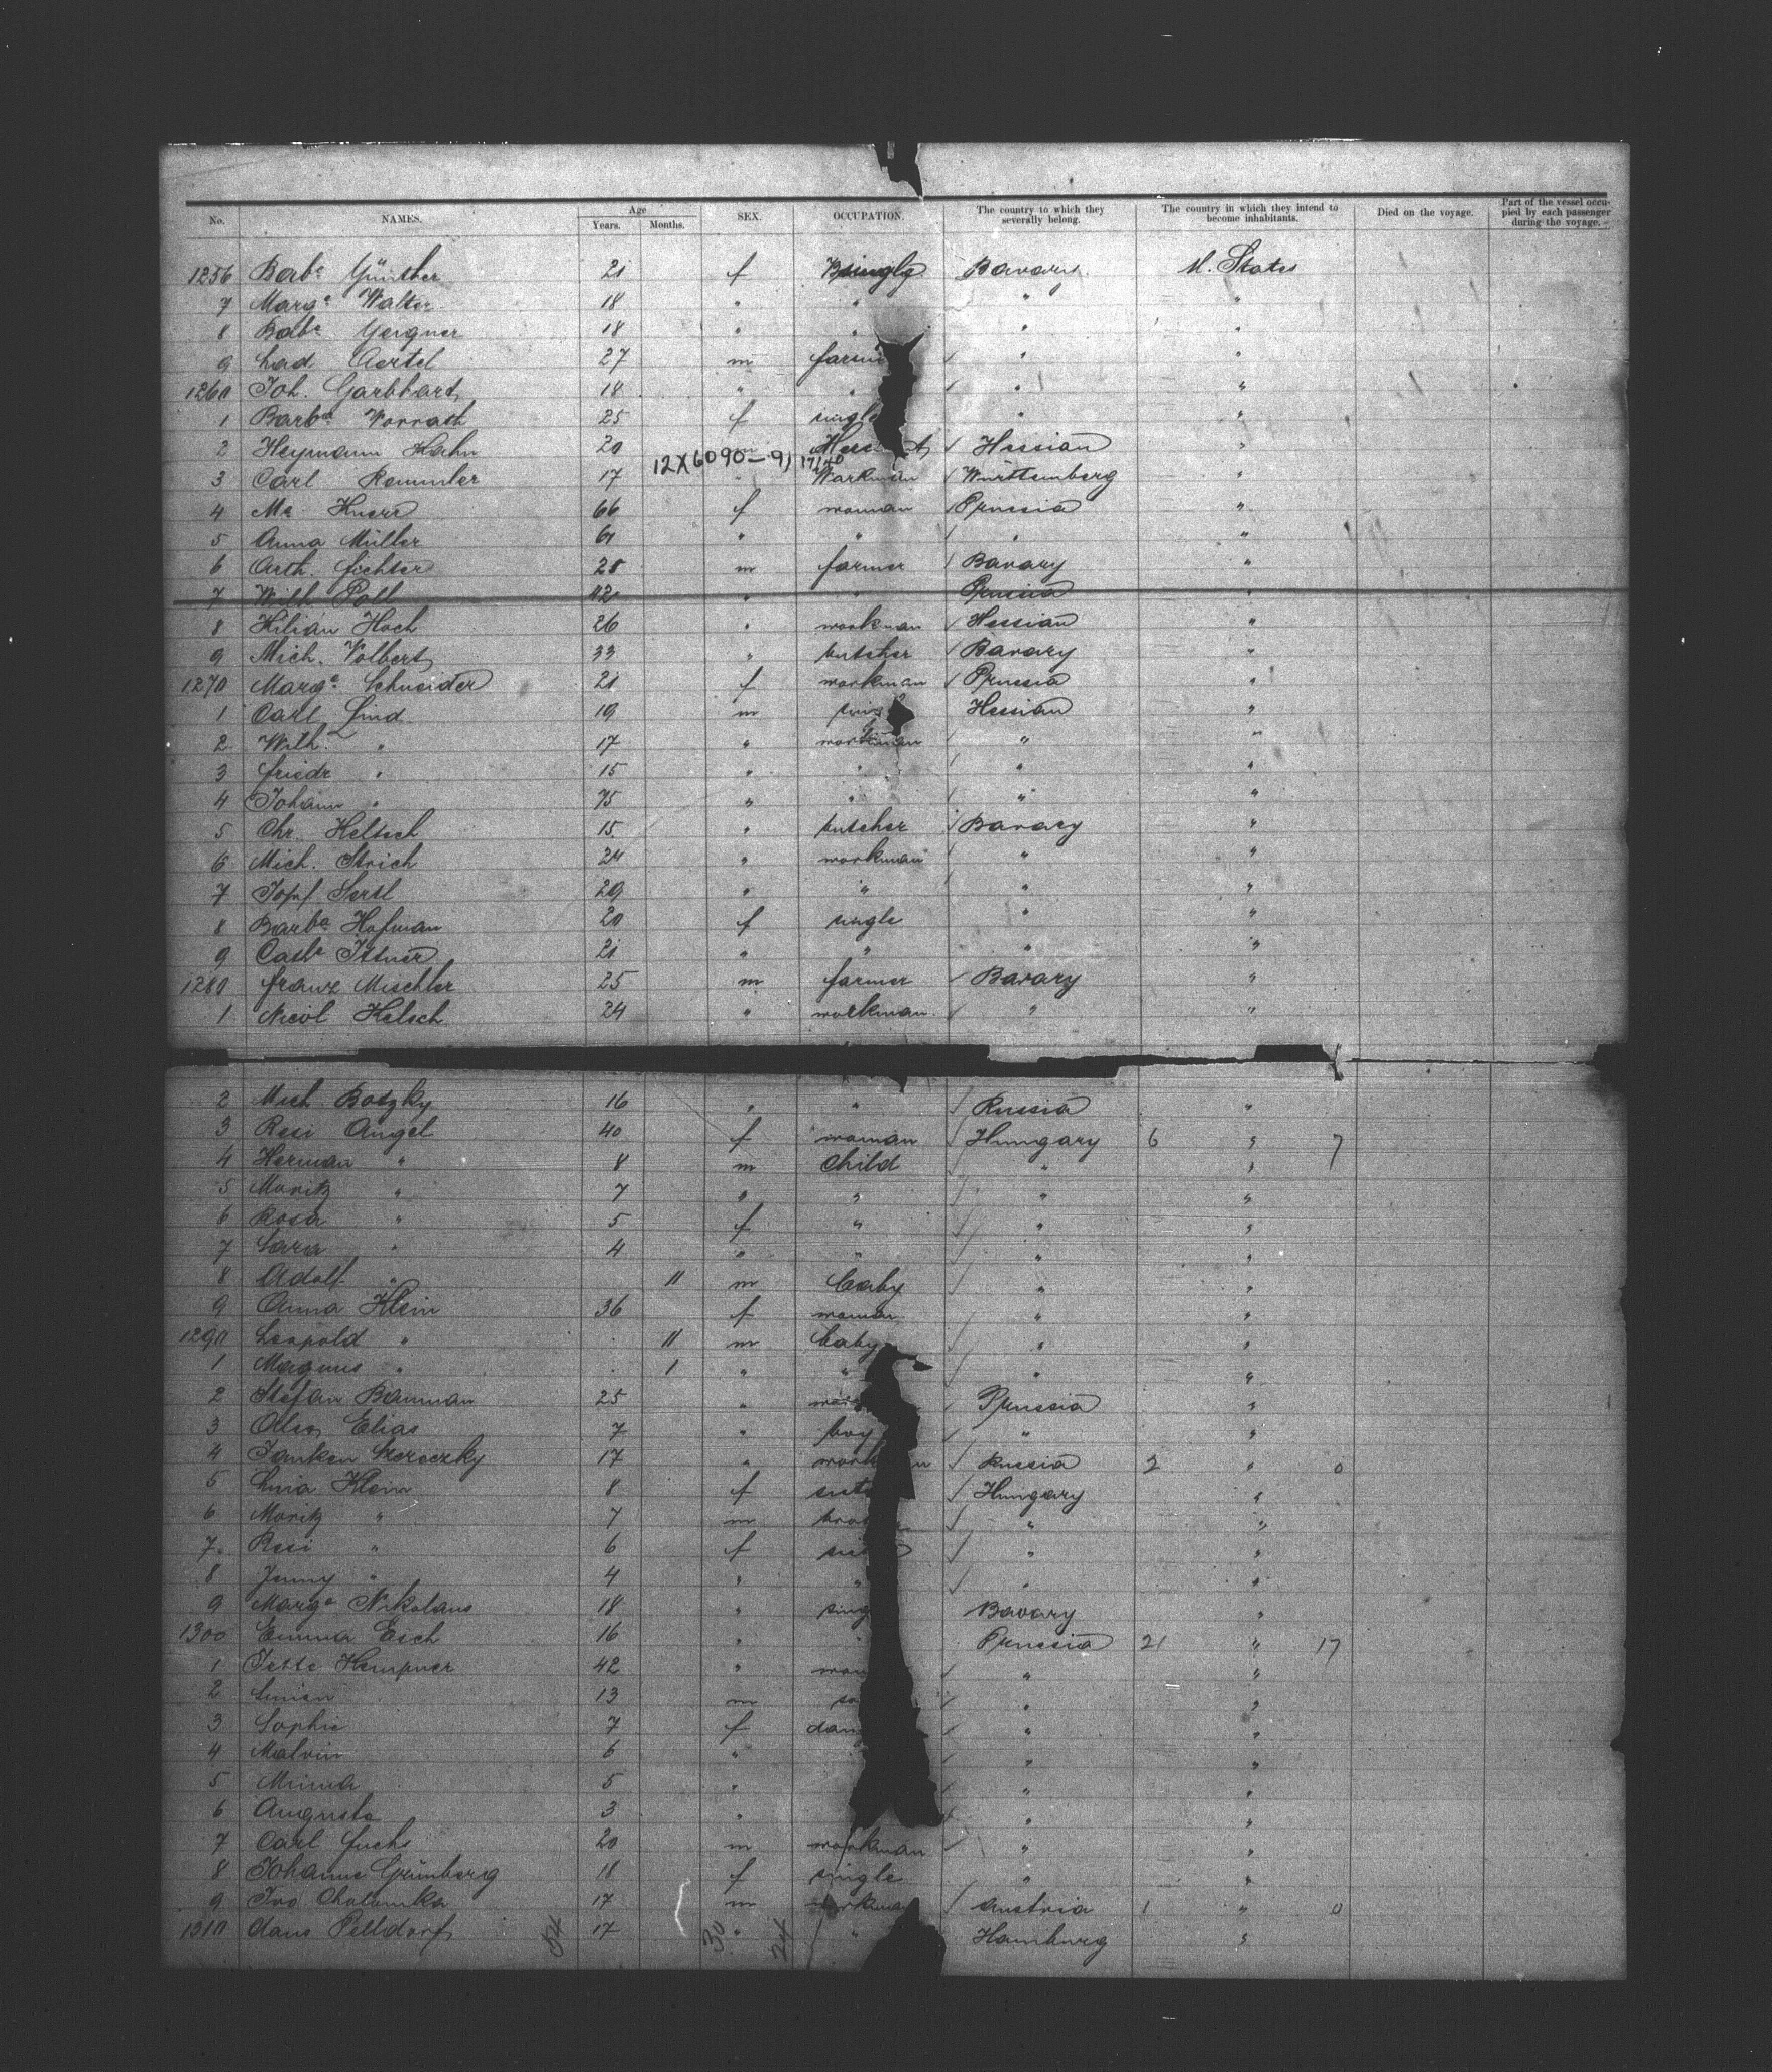 No. NAMES. Age Years. Months. SEX. OCCUPATION. The country to which they severally belong. The country in which they intend to become inhabitants. Died on the voyage. Part of the vessel occupied by each passenger during the voyage.
1256 Barba Günther 21 f single Bavary U. States
7 Marga Walter 18 " " " "
8 Baba Gergner 18 " " " "
9 Aertel 27 m farm " "
1260 Joh. Garbhard 18 " " " "
1 Barba Worrath 25 f single " "
2 Heymann Hahn 20 Hessian "
12X6090-9)
3 Carl Remmler 17 " Workman Württemberg "
4 Ma 66 f woman Prussia "
5 Anna Müller 61 " " " "
6 Fichter m farmer Bavary "
7 Wilh Poll 42 " " Prussia "
8 Kilian Hoch 26 " workman Hessian "
9 Mich. Volbert 33 " butcher Bavary "
1270 Marga Schneider 21 f workman Prussia "
1 Carl Lind 19 m Hessian "
2 Wilh. " 17 " workman " "
3 Friedr " 15 " " " "
4 Johann " " " " "
5 Chr. Heltsch 15 " butcher Bavary "
6 Mich. Strich 24 " workman " "
7 Sertl 29 " " " "
8 Barba Hofman 20 f single " "
9 Cath Ittner 21 " " " "
1280 Franz Mischler 25 m farmer Bavary "
1 Nicol Kelsch 24 " workman " "
2 Mich. Botzky 16 " " Russia "
3 Resi Angel 40 f woman Hungary 6 " 7
4 Herman " 8 m Child " "
5 Moritz " 7 " " " "
6 Rosa " 5 f " " "
7 Sara " 4 " " " "
8 Adolf " 11 m baby " "
9 Anna Klein 36 f woman " "
1290 Leopold " 11 m baby " "
1 Magnus " 1 " " " "
2 Stefan Bauman 25 " Prussia "
3 Elias 7 " boy " "
4 17 " Russia 2 " 0
5 Klein 8 f Hungary "
6 Moritz " 7 m " "
7 Resi " 6 f " "
8 Jenny " 4 " " " "
9 Marga Nikolaus 18 " Bavary "
1300 Emma Esch 16 " Prussia 21 " 17
1 Jette Kempner 42 " " "
2 Simon 13 m " "
3 Sophie 7 f " "
4 Malvin 6 " " "
5 Minna 5 " " "
6 Augusta 3 " " "
7 Carl Fuchs 20 m workman " "
8 Johanne Grünberg 18 f single " "
9 Ivo Chalumka 17 m workman Austria 1 " 0
1310 Claus Pelldorf 17 " " Hamburg "
30 24